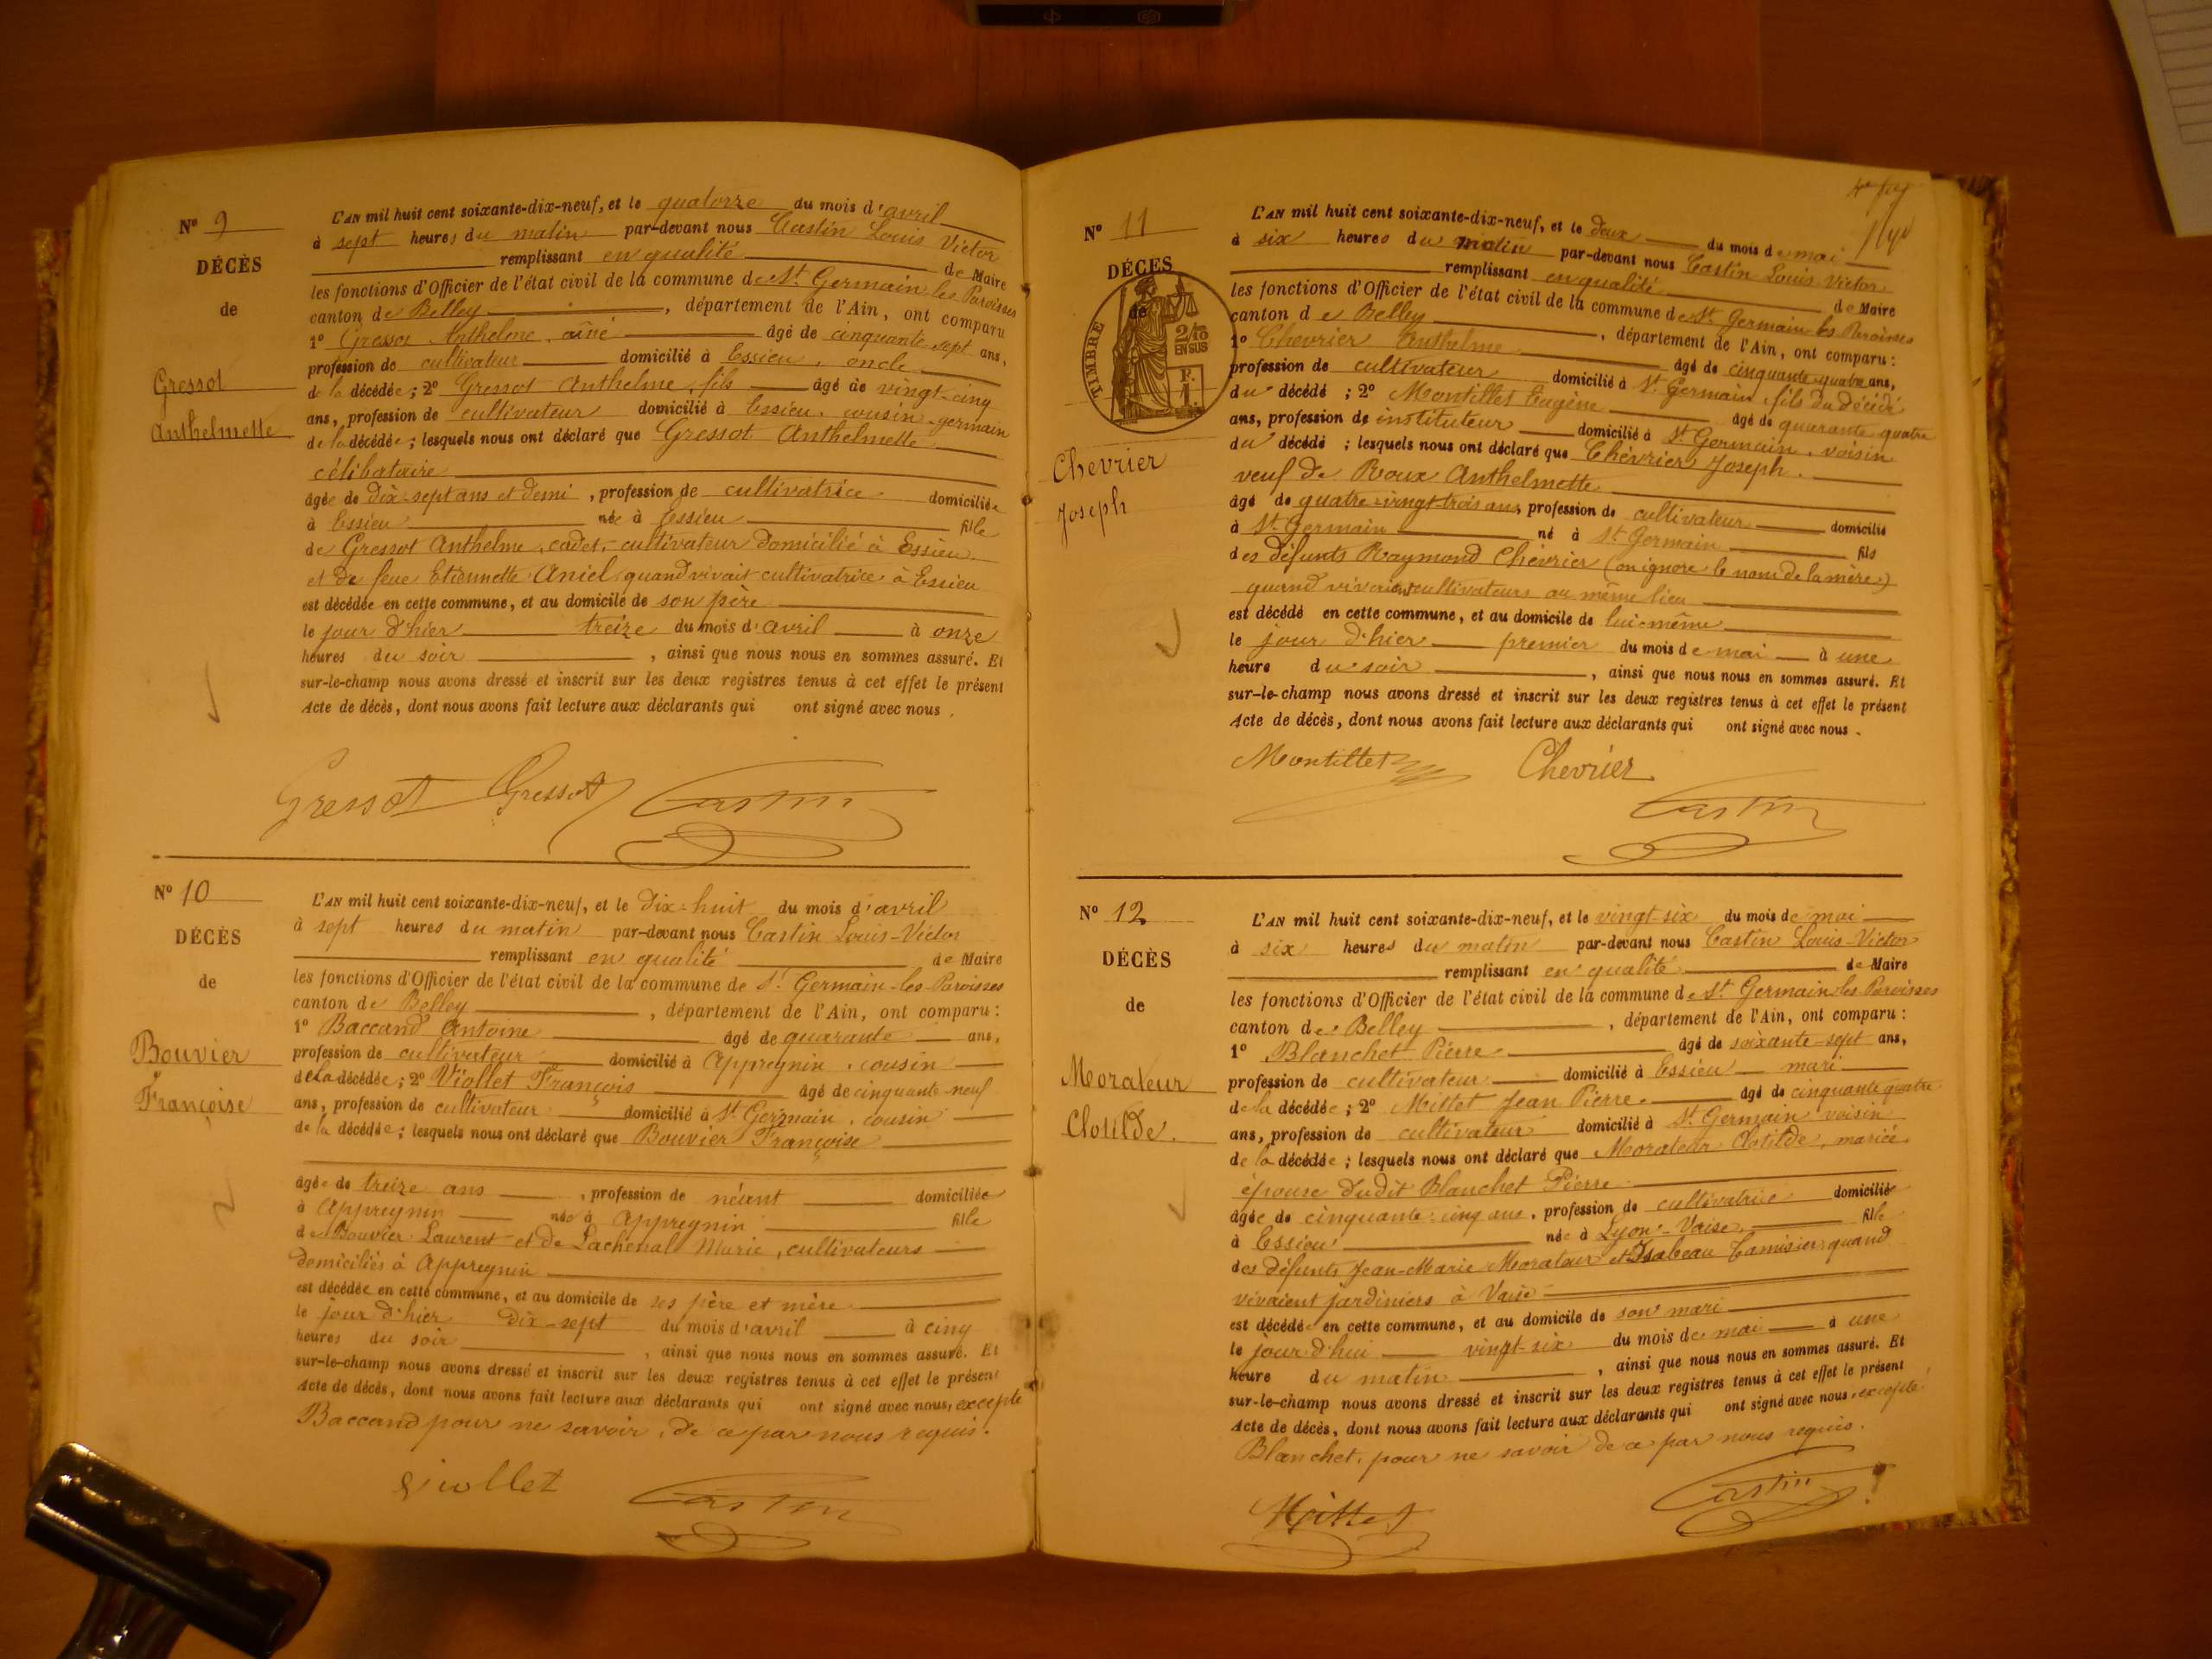 Nº 9
DÉCÈS
de
Gressot
Anthelmette
L'AN mil huit cent soixante-dix-neuf, et le quatorze du mois d'avril
à sept heures du matin par-devant nous Castin Louis Victor
remplissant en qualité de Maire
les fonctions d'Officier de l'état civil de la commune de St Germain les Paroisses
canton de Belley, département de l'Ain, ont comparu
1º Gressot Anthelme, aîné âgé de cinquante-sept ans,
profession de cultivateur domicilié à Essieu, oncle
de la décédée ; 2º Gressot Anthelme, fils âgé de vingt-cinq
ans, profession de cultivateur domicilié à Essieu, cousin-germain
de la décédée ; lesquels nous ont déclaré que Gressot Anthelmette
célibataire
âgée de dix-sept ans et demi, profession de cultivatrice domiciliée
à Essieu née à Essieu fille
de Gressot Anthelme, cadet, cultivateur domicilié à Essieu
et de feue Etiennette Aniel quand vivait cultivatrice à Essieu
est décédée en cette commune, et au domicile de son père
le jour d'hier treize du mois d'avril à onze
heures du soir, ainsi que nous nous en sommes assuré. Et
sur-le-champ nous avons dressé et inscrit sur les deux registres tenus à cet effet le présent
Acte de décès, dont nous avons fait lecture aux déclarants qui ont signé avec nous.
Gressot Gressot Castin
Nº 10
DÉCÈS
de
Bouvier
Françoise
L'AN mil huit cent soixante-dix-neuf, et le dix-huit du mois d'avril
à sept heures du matin par-devant nous Castin Louis-Victor
remplissant en qualité de Maire
les fonctions d'Officier de l'état civil de la commune de St Germain-les-Paroisses
canton de Belley, département de l'Ain, ont comparu :
1º Baccand Antoine âgé de quarante ans,
profession de cultivateur domicilié à Appregnin, cousin
de la décédée ; 2º Viollet François âgé de cinquante-neuf
ans, profession de cultivateur domicilié à St Germain, cousin
de la décédée ; lesquels nous ont déclaré que Bouvier Françoise
âgée de treize ans, profession de néant domiciliée
à Appregnin née à Appregnin fille
de Bouvier Laurent et de Lachenal Marie, cultivateurs
domiciliés à Appregnin
est décédée en cette commune, et au domicile de ses père et mère
le jour d'hier dix-sept du mois d'avril à cinq
heures du soir, ainsi que nous nous en sommes assuré. Et
sur-le-champ nous avons dressé et inscrit sur les deux registres tenus à cet effet le présent
Acte de décès, dont nous avons fait lecture aux déclarants qui ont signé avec nous, excepté
Baccand pour ne savoir, de ce par nous requis.
Viollet Castin
Nº 11
DÉCÈS
de
TIMBRE
2/10
EN SUS
F.
1.
Chevrier
Joseph
L'AN mil huit cent soixante-dix-neuf, et le deux du mois de mai
à six heures du matin par-devant nous Castin Louis Victor
remplissant en qualité de Maire
les fonctions d'Officier de l'état civil de la commune de St Germain-les Paroisses
canton de Belley, département de l'Ain, ont comparu :
1º Chevrier Anthelme âgé de cinquante-quatre ans,
profession de cultivateur domicilié à St Germain, fils du décédé
du décédé ; 2º Montillet Eugène âgé de quarante quatre
ans, profession de instituteur domicilié à St Germain, voisin
du décédé ; lesquels nous ont déclaré que Chevrier Joseph
veuf de Roux Anthelmette
âgé de quatre-vingt-trois ans, profession de cultivateur domicilié
à St Germain né à St Germain fils
des défunts Raymond Chevrier (on ignore le nom de la mère)
quand vivaient cultivateurs au même lieu
est décédé en cette commune, et au domicile de lui-même
le jour d'hier premier du mois de mai à une
heure du soir, ainsi que nous nous en sommes assuré. Et
sur-le-champ nous avons dressé et inscrit sur les deux registres tenus à cet effet le présent
Acte de décès, dont nous avons fait lecture aux déclarants qui ont signé avec nous.
Montillet Chevrier
Castin
Nº 12
DÉCÈS
de
Morateur
Clotilde.
L'AN mil huit cent soixante-dix-neuf, et le vingt-six du mois de mai
à six heures du matin par-devant nous Castin Louis-Victor
remplissant en qualité de Maire
les fonctions d'Officier de l'état civil de la commune de St Germain les Paroisses
canton de Belley, département de l'Ain, ont comparu :
1º Blanchet Pierre âgé de soixante-sept ans,
profession de cultivateur domicilié à Essieu mari
de la décédée ; 2º Millet Jean Pierre. âgé de cinquante quatre
ans, profession de cultivateur domicilié à St Germain voisin
de la décédée ; lesquels nous ont déclaré que Morateur Clotilde, mariée
épouse dudit Blanchet Pierre
âgée de cinquante-cinq ans, profession de cultivatrice domicilié
à Essieu née à Lyon-Vaise, fille
des défunts Jean-Marie Morateur et Isabeau Camisier quand
vivaient jardiniers à Vaise
est décédée en cette commune, et au domicile de son mari
le jour d'hui vingt-six du mois de mai à une
heure du matin, ainsi que nous nous en sommes assuré. Et
sur-le-champ nous avons dressé et inscrit sur les deux registres tenus à cet effet le présent
Acte de décès, dont nous avons fait lecture aux déclarants qui ont signé avec nous, excepté
Blanchet, pour ne savoir de ce par nous requis.
Millet Castin